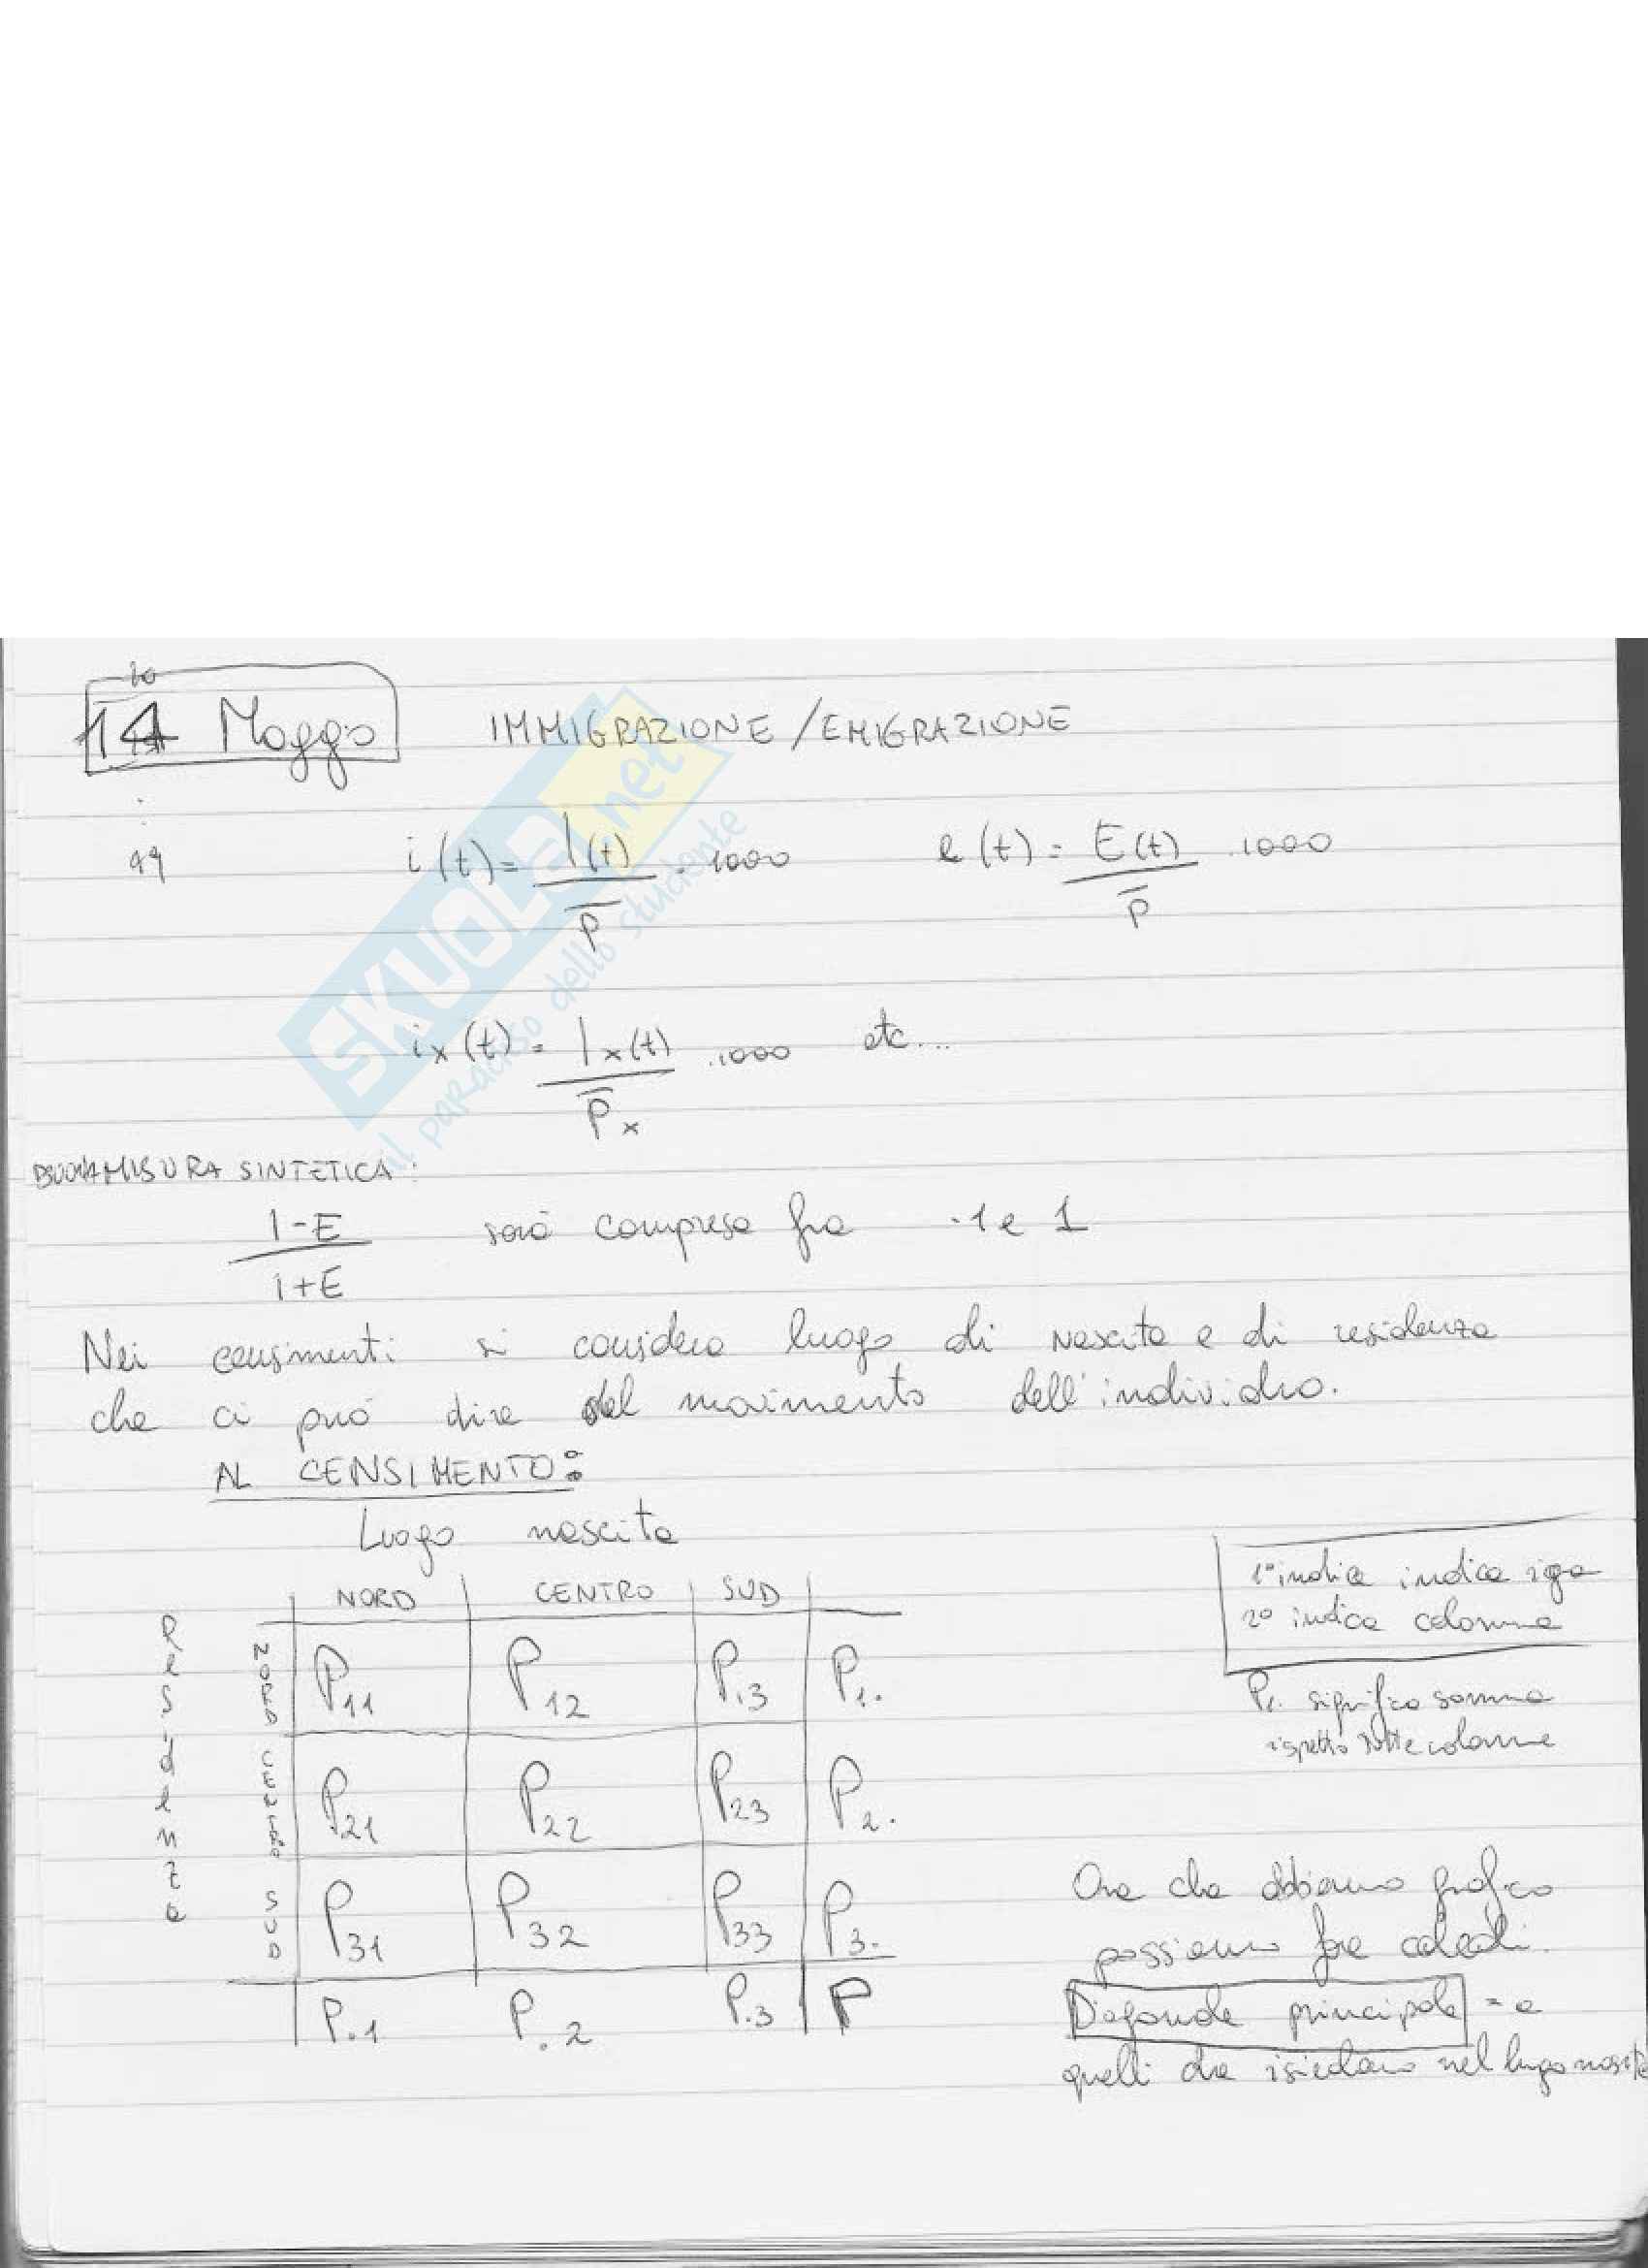 10
14 Maggio
IMMIGRAZIONE / EMIGRAZIONE
99
i(t) = I(t) / P̅ · 1000
e(t) = E(t) / P̅ · 1000
ix(t) = Ix(t) / P̅x · 1000 etc...
BUONA MISURA SINTETICA:
I-E / I+E sarà compresa fra -1 e 1
Nei censimenti si considera luogo di nascita e di residenza
che ci può dire del movimento dell'individuo.
AL CENSIMENTO:
Luogo nascita
NORD CENTRO SUD
Residenza
NORD P11 P12 P13 P1.
CENTRO P21 P22 P23 P2.
SUD P31 P32 P33 P3.
P.1 P.2 P.3 P
1° indice indica riga
2° indica colonna
P1. significa somma
rispetto tutte colonne
Ora che abbiamo grafico
possiamo fare calcoli.
Diagonale principale = a
quelli che risiedono nel luogo nascita
SKUOLA.net
il paradiso dello studente